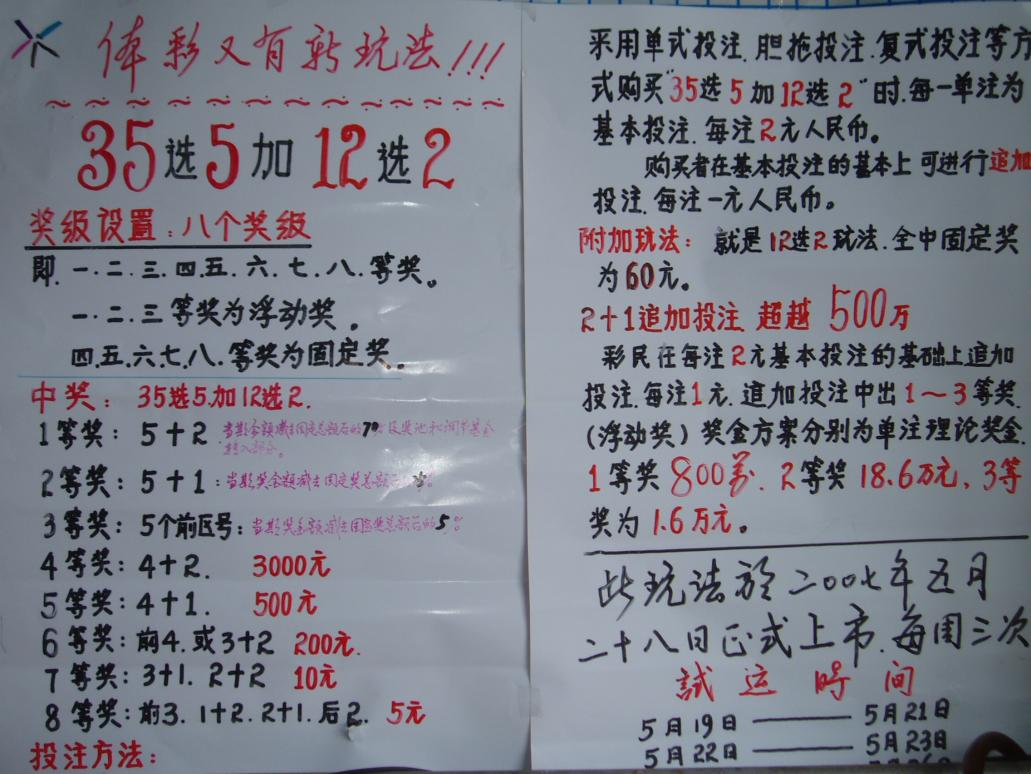 体彩又有新玩法!!!
35选5加12选2
奖级设置:八个奖级
即.一.二.三.四.五.六.七.八.等奖。
一.二.三等奖为浮动奖。
四.五.六.七.八.等奖为固定奖。
中奖: 35选5.加12选2.
1等奖: 5+2 当期奖金额减去固定奖总额后的
2等奖: 5+1: 当期奖金额减去固定奖总额后的
3等奖: 5个前区号: 当期奖金额减去固定奖总额后的5%
4等奖: 4+2. 3000元
5等奖: 4+1. 500元
6等奖: 前4.或3+2 200元.
7等奖: 3+1. 2+2 10元
8等奖: 前3. 1+2. 2+1. 后2. 5元
投注方法:
采用单式投注.胆拖投注.复式投注等方
式购买"35选5加12选2"时.每一单注为
基本投注.每注2元人民币。
购买者在基本投注的基本上可进行追加
投注.每注一元人民币。
附加玩法: 就是12选2玩法.全中固定奖
为60元。
2+1追加投注 超越500万
彩民在每注2元基本投注的基础上追加
投注.每注1元.追加投注中出1~3等奖.
(浮动奖)奖金方案分别为单注理论奖金.
1等奖800万.2等奖18.6万元,3等
奖为1.6万元。
此玩法於二00七年五月
二十八日正式上市.每周三次
試运時间
5月19日——5月21日
5月22日——5月23日